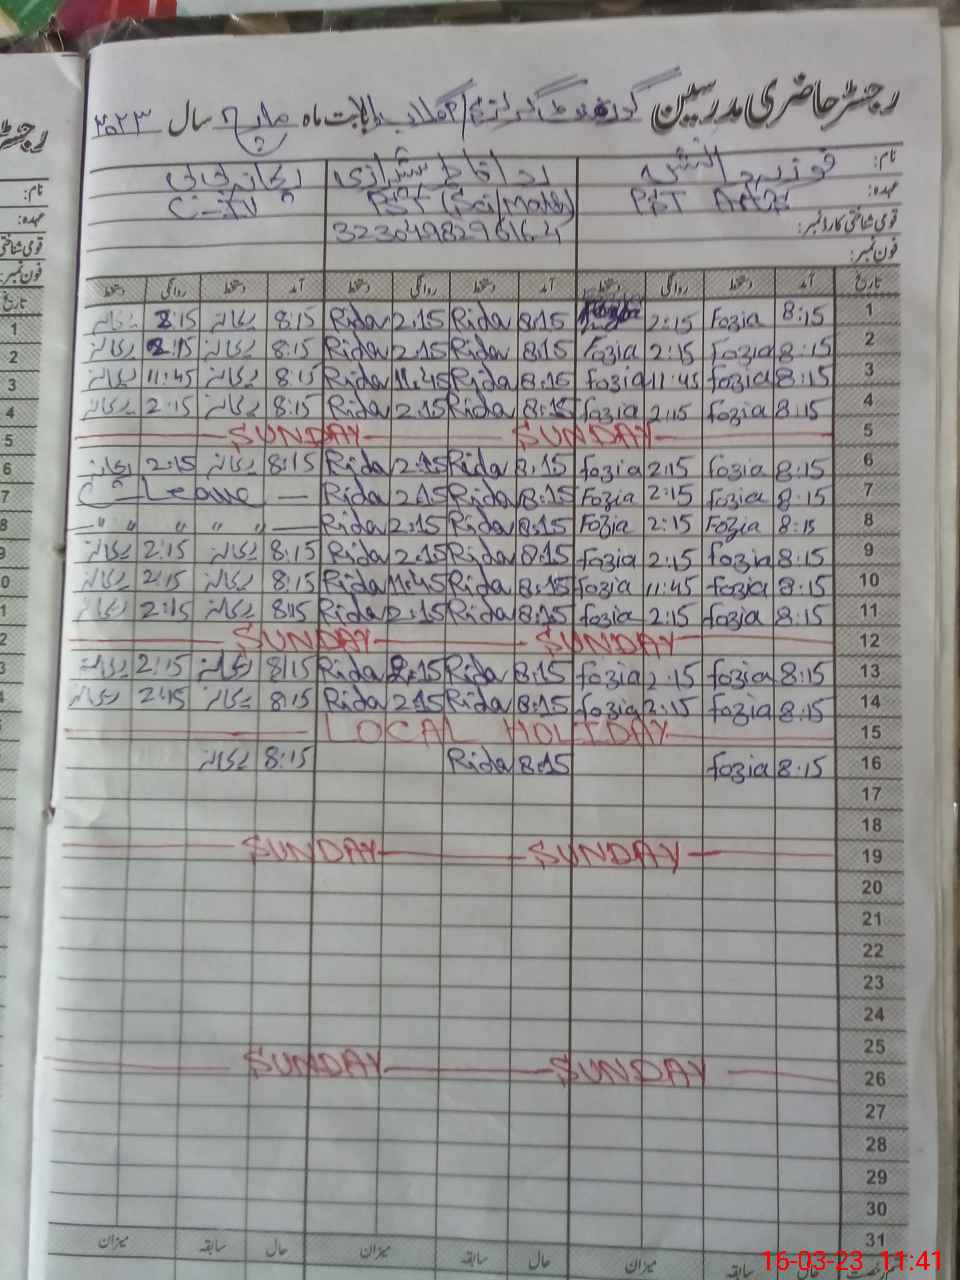 رجسٹر حاضری مدرسین گورنمنٹ گرلز بابت ماہ مارچ سال ۲۰۲۳
نام: فوزیہ ردا فاطمہ شیرازی ریحانہ بی بی
عہدہ: PST Arts PST (Sci/Math) C-IV
قومی شناختی کارڈ نمبر:
فون نمبر:
تاریخ آمد دستخط روانگی دستخط آمد دستخط روانگی دستخط آمد دستخط روانگی دستخط
1 8:15 Fozia 2:15 8:15 Rida 2:15 Rida 8:15 ریحانہ 2:15 ریحانہ
2 8:15 Fozia 2:15 Fozia 8:15 Rida 2:15 Rida 8:15 ریحانہ 2:15 ریحانہ
3 8:15 fozia 11:45 fozia 8:15 Rida 11:45 Rida 8:15 ریحانہ 11:45 ریحانہ
4 8:15 fozia 2:15 fozia 8:15 Rida 2:15 Rida 8:15 ریحانہ 2:15 ریحانہ
5 SUNDAY SUNDAY
6 8:15 fozia 2:15 fozia 8:15 Rida 2:15 Rida 8:15 ریحانہ 2:15 ریحانہ
7 8:15 fozia 2:15 Fozia 8:15 Rida 2:15 Rida C-Leave
8 8:15 Fozia 2:15 Fozia 8:15 Rida 2:15 Rida " " " " "
9 8:15 fozia 2:15 fozia 8:15 Rida 2:15 Rida 8:15 ریحانہ 2:15 ریحانہ
10 8:15 fozia 11:45 fozia 8:15 Rida 11:45 Rida 8:15 ریحانہ 2:15 ریحانہ
11 8:15 fozia 2:15 fozia 8:15 Rida 2:15 Rida 8:15 ریحانہ 2:15 ریحانہ
12 SUNDAY SUNDAY
13 8:15 fozia 2:15 fozia 8:15 Rida 2:15 Rida 8:15 ریحانہ 2:15 ریحانہ
14 8:15 fozia 2:15 fozia 8:15 Rida 2:15 Rida 8:15 ریحانہ 2:15 ریحانہ
15 LOCAL HOLIDAY
16 8:15 fozia 8:15 Rida 8:15 ریحانہ
17
18
19 SUNDAY SUNDAY
20
21
22
23
24
25
26 SUNDAY SUNDAY
27
28
29
30
31
حال سابقہ میزان حال سابقہ میزان حال سابقہ میزان
16-03-23 11:41